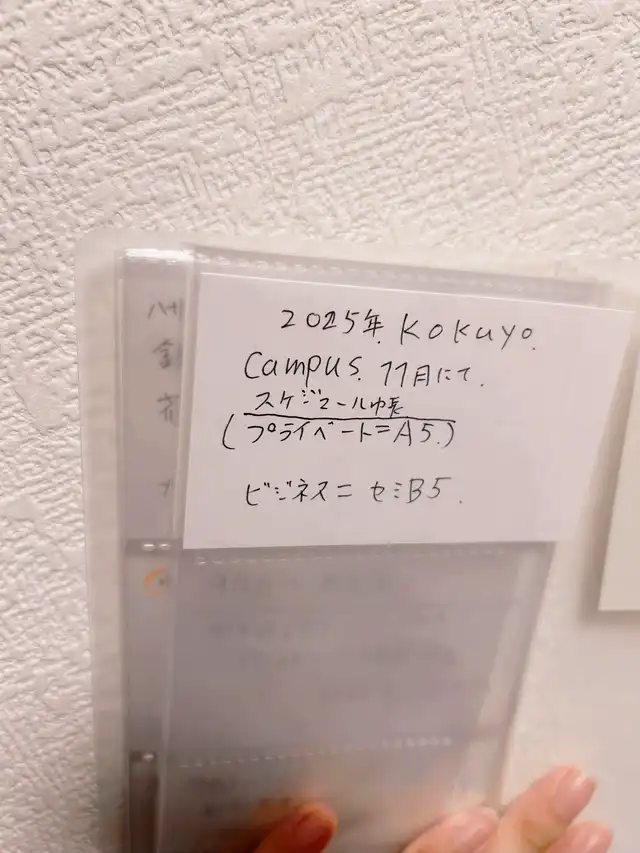 2025年. KOKUYO.
Campus. 11月にて.
スケジュール帳
(プライベート=A5.)
ビジネス=セミB5.